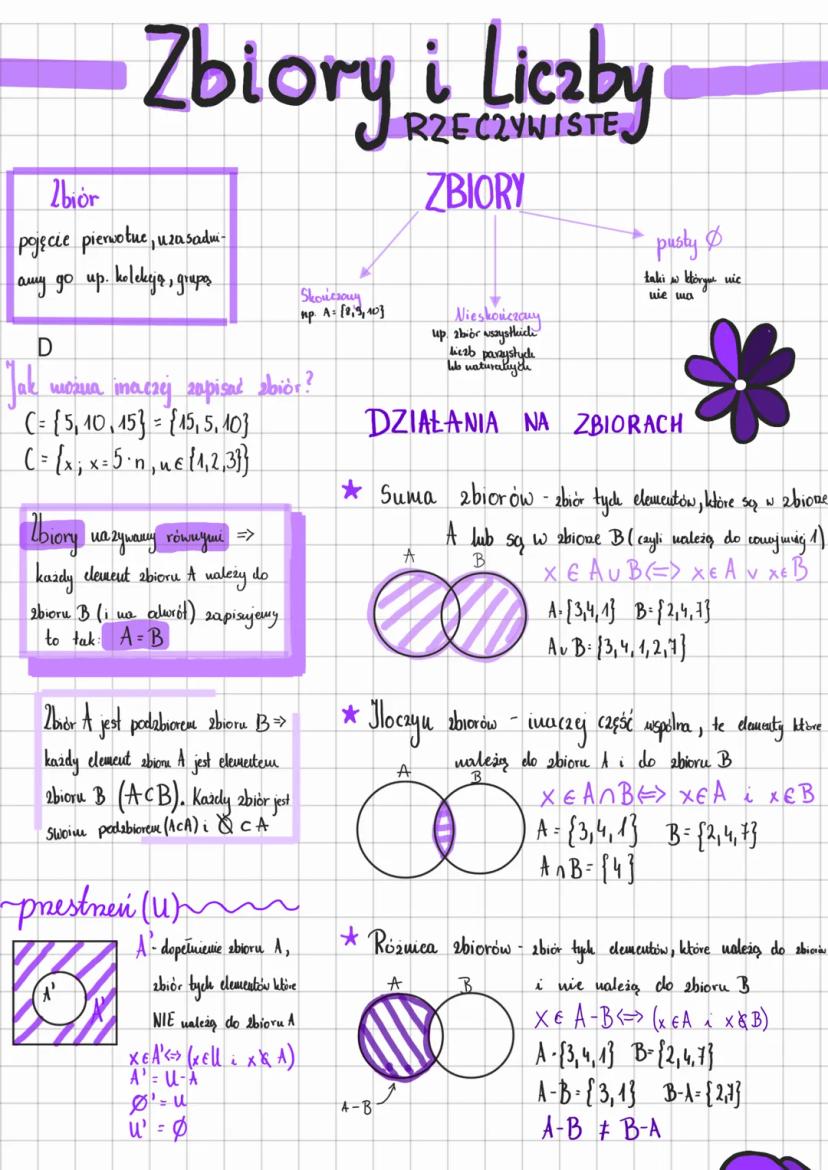 Zbiory i Liczby
RZECZYWISTE
Zbiór
pojęcie pierwotne, uzasadni-
amy go np. kolekcją, grupą
ZBIORY
Skończony
np. A = {8,9,10}
Nieskończony
np. zbiór wszystkich
liczb parzystych
lub naturalnych
pusty Ø
taki w którym nic
nie ma
D
Jak można inaczej zapisać zbiór?
C = {5, 10, 15} = {15, 5, 10}
C = {x ; x = 5·n , n ∈ {1,2,3}}
Zbiory nazywamy równymi =>
każdy element zbioru A należy do
zbioru B (i na odwrót) zapisujemy
to tak: A = B
Zbiór A jest podzbiorem zbioru B =>
każdy element zbioru A jest elementem
zbioru B (A⊂B). Każdy zbiór jest
swoim podzbiorem (A⊂A) i Ø ⊂ A
przestrzeń (U)
A'
A'
A' - dopełnienie zbioru A,
zbiór tych elementów które
NIE należą do zbioru A
x ∈ A' <=> (x ∈ U i x ∉ A)
A' = U-A
Ø' = U
U' = Ø
DZIAŁANIA NA ZBIORACH
★ Suma zbiorów - zbiór tych elementów, które są w zbiorze
A lub są w zbiorze B (czyli należą do conajmniej 1)
A B
x ∈ A∪B <=> x∈A ∨ x∈B
A = {3,4,1} B = {2,4,7}
A∪B = {3, 4, 1, 2, 7}
★ Iloczyn zbiorów - inaczej część wspólna, te elementy które
należą do zbioru A i do zbioru B
A B
x ∈ A∩B <=> x∈A i x∈B
A = {3,4,1} B = {2,4,7}
A∩B = {4}
★ Różnica zbiorów - zbiór tych elementów, które należą do zbioru
i nie należą do zbioru B
A B
A-B
x ∈ A-B <=> (x∈A i x∉B)
A = {3,4,1} B = {2,4,7}
A-B = {3,1} B-A = {2,7}
A-B ≠ B-A